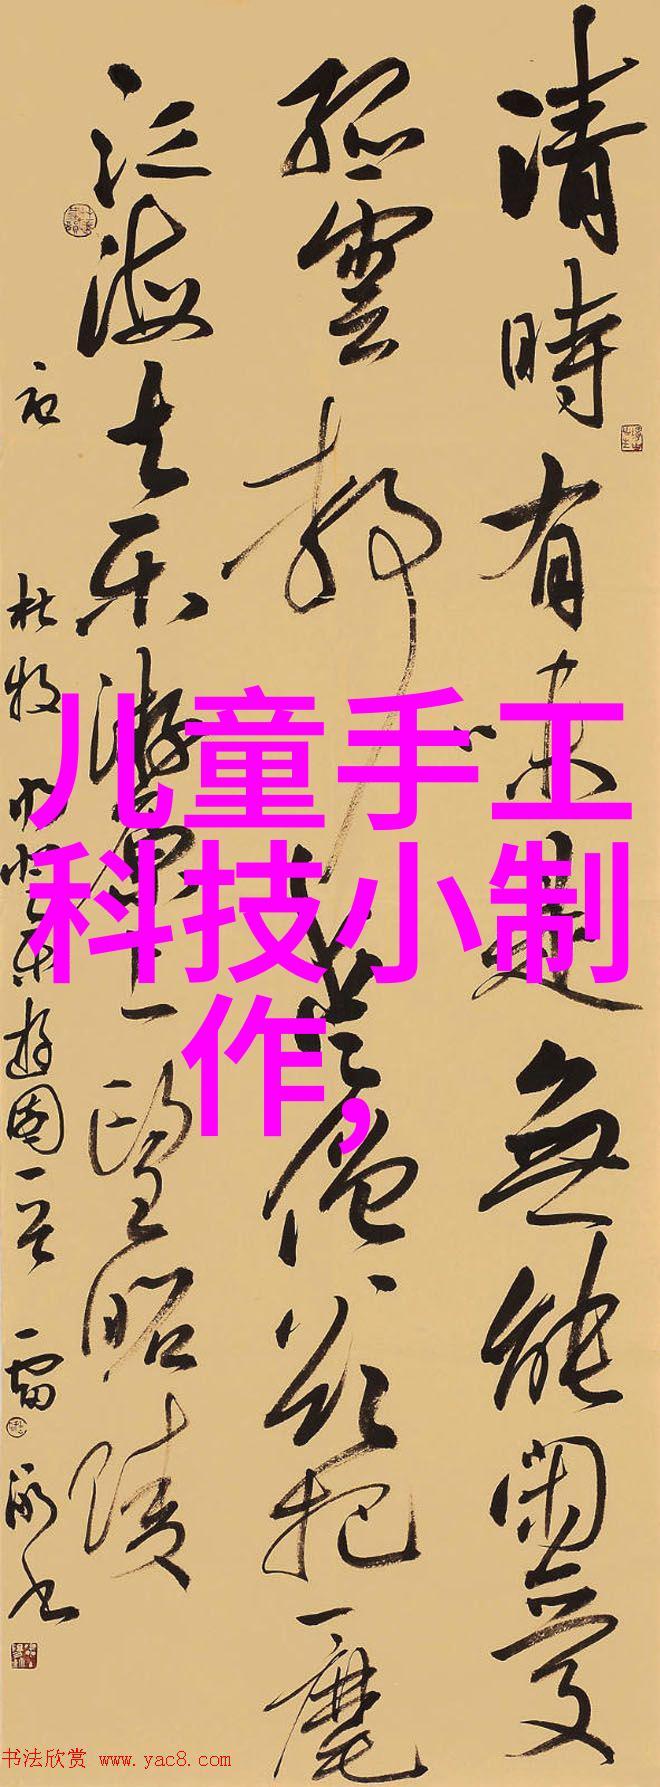 清時有味是無能閑愛
孤雲靜愛僧欲把一麾
江海去乐游原上望昭陵
杜牧
儿童手工
科技小制
作,
书法欣赏 www.yac8.com